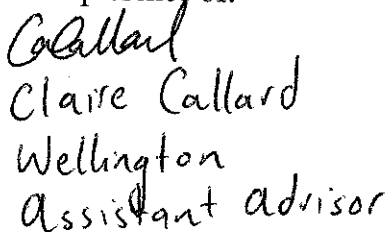 CaCallard
Claire Callard
Wellington
assistant advisor